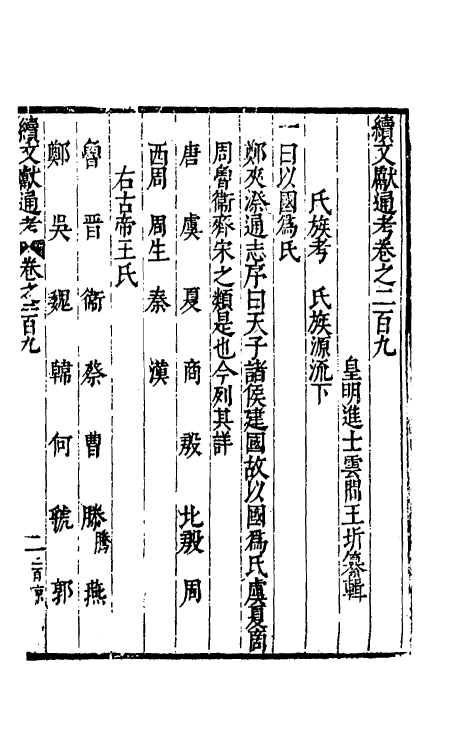 續文獻通考卷之二百九
皇明進士雲間王圻纂輯
氏族考　氏族源流下
一曰以國爲氏
鄭夾漈通志序曰天子諸侯建國故以國爲氏虞夏商
周魯衞齊宋之類是也今列其詳
唐　虞　夏　商　殷　北殷　周
西周　周生　秦　漢
右古帝王氏
魯　晉　衞　蔡　曹　滕騰　燕
鄭　吳　魏　韓　何　虢　郭
續文獻通考　卷之二百九